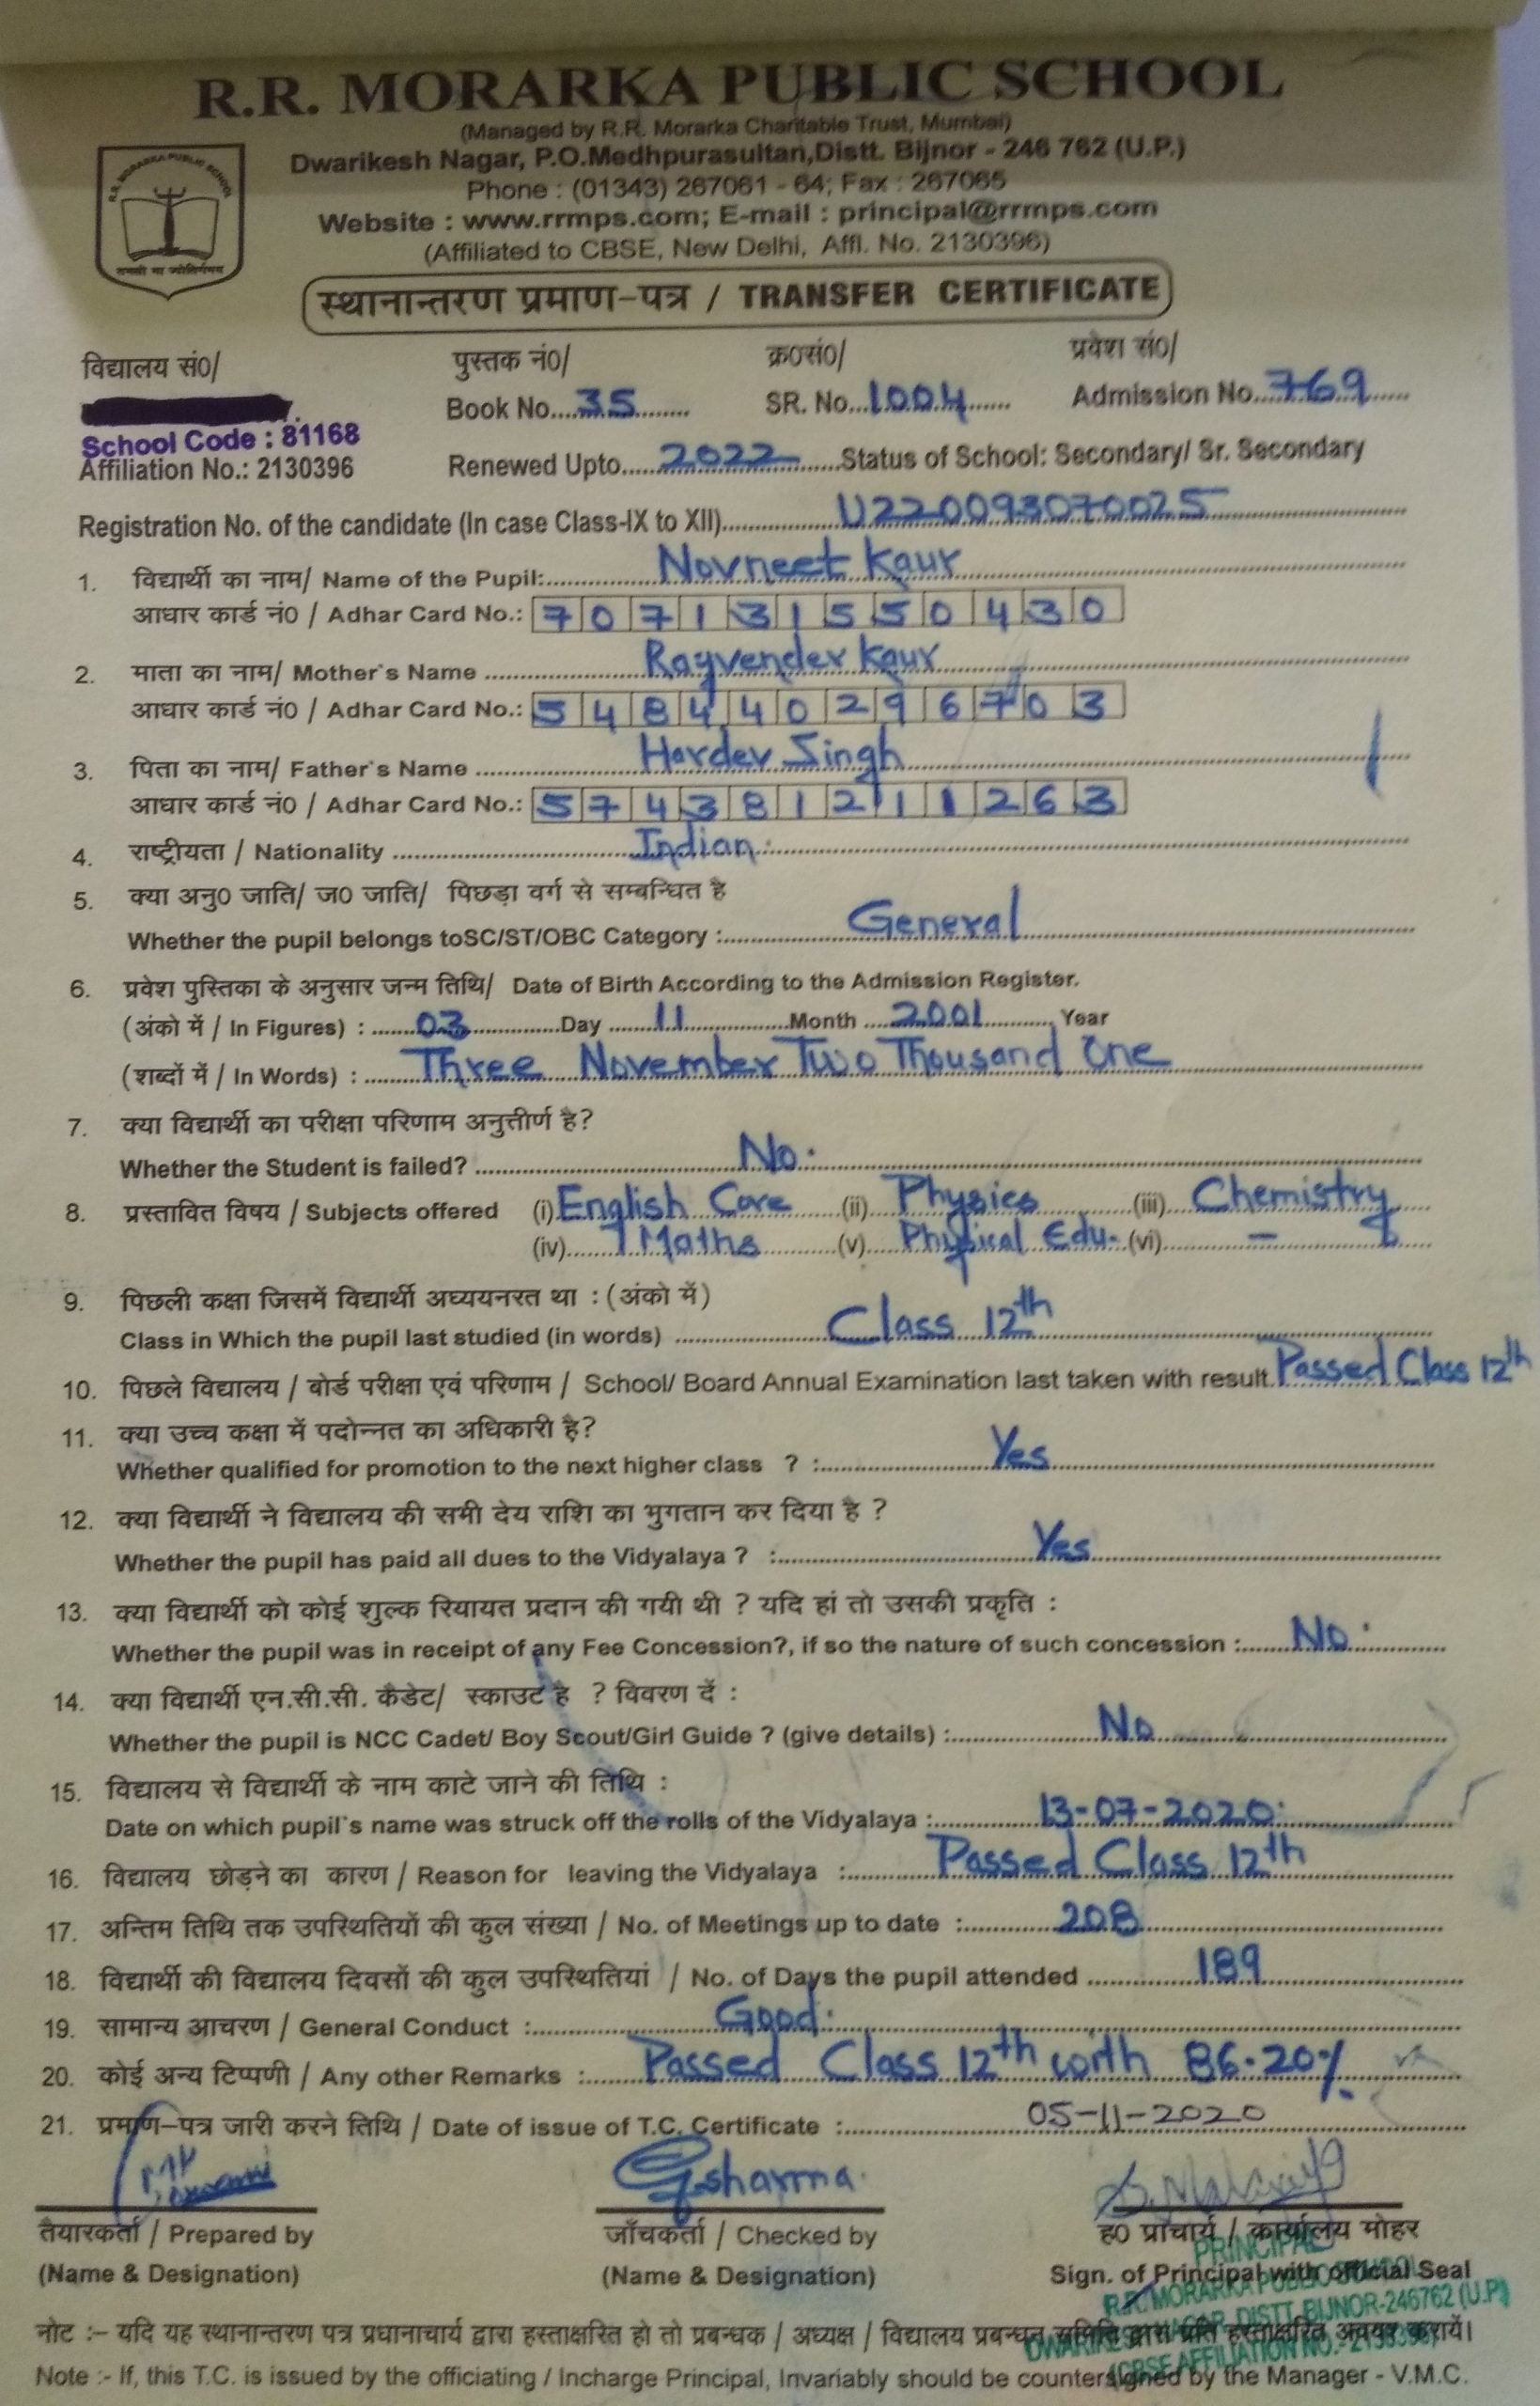 R.R. MORARKA PUBLIC SCHOOL
(Managed by R.R. Morarka Charitable Trust, Mumbai)
Dwarikesh Nagar, P.O.Medhpurasultan,Distt. Bijnor - 246 762 (U.P.)
Phone : (01343) 267061 - 64; Fax : 267065
Website : www.rrmps.com; E-mail : principal@rrmps.com
(Affiliated to CBSE, New Delhi, Affl. No. 2130396)
R.R. MORARKA PUBLIC SCHOOL
तमसो मा ज्योतिर्गमय
स्थानान्तरण प्रमाण-पत्र / TRANSFER CERTIFICATE
विद्यालय सं0/ पुस्तक नं0/ क्र0सं0/ प्रवेश सं0/
Book No....35........ SR. No...1004...... Admission No...769.....
School Code : 81168
Affiliation No.: 2130396 Renewed Upto.....2022......Status of School: Secondary/ Sr. Secondary
Registration No. of the candidate (In case Class-IX to XII)................U220093070025..................
1. विद्यार्थी का नाम/ Name of the Pupil:..............Novneet Kaur..................
आधार कार्ड नं0 / Adhar Card No.: 707131550430
2. माता का नाम/ Mother's Name ..................Rayvender Kaur..................
आधार कार्ड नं0 / Adhar Card No.: 548440296703
3. पिता का नाम/ Father's Name ..................Hardev Singh..................
आधार कार्ड नं0 / Adhar Card No.: 574381211263
4. राष्ट्रीयता / Nationality ..................Indian..................
5. क्या अनु0 जाति/ ज0 जाति/ पिछड़ा वर्ग से सम्बन्धित है
Whether the pupil belongs toSC/ST/OBC Category :..............General..................
6. प्रवेश पुस्तिका के अनुसार जन्म तिथि/ Date of Birth According to the Admission Register.
(अंको में / In Figures) : ......03............Day ......11............Month ....2001......... Year
(शब्दों में / In Words) : ......Three November Two Thousand One..................
7. क्या विद्यार्थी का परीक्षा परिणाम अनुत्तीर्ण है?
Whether the Student is failed? ..................No..................
8. प्रस्तावित विषय / Subjects offered (i) English Core (ii) Physics (iii) Chemistry
(iv) Maths (v) Physical Edu. (vi) —
9. पिछली कक्षा जिसमें विद्यार्थी अघ्ययनरत था : (अंको में)
Class in Which the pupil last studied (in words) ..................Class 12th..................
10. पिछले विद्यालय / बोर्ड परीक्षा एवं परिणाम / School/ Board Annual Examination last taken with result. Passed Class 12th
11. क्या उच्च कक्षा में पदोन्नत का अधिकारी है?
Whether qualified for promotion to the next higher class ? :..................Yes..................
12. क्या विद्यार्थी ने विद्यालय की सभी देय राशि का भुगतान कर दिया है ?
Whether the pupil has paid all dues to the Vidyalaya ? :..................Yes..................
13. क्या विद्यार्थी को कोई शुल्क रियायत प्रदान की गयी थी ? यदि हां तो उसकी प्रकृति :
Whether the pupil was in receipt of any Fee Concession?, if so the nature of such concession :......No.........
14. क्या विद्यार्थी एन.सी.सी. कैडेट/ स्काउट है ? विवरण दें :
Whether the pupil is NCC Cadet/ Boy Scout/Girl Guide ? (give details) :..................No..................
15. विद्यालय से विद्यार्थी के नाम काटे जाने की तिथि :
Date on which pupil's name was struck off the rolls of the Vidyalaya :............13-07-2020..................
16. विद्यालय छोड़ने का कारण / Reason for leaving the Vidyalaya :............Passed Class 12th..................
17. अन्तिम तिथि तक उपस्थितियों की कुल संख्या / No. of Meetings up to date :............208..................
18. विद्यार्थी की विद्यालय दिवसों की कुल उपस्थितियां / No. of Days the pupil attended ............189..................
19. सामान्य आचरण / General Conduct :..................Good..................
20. कोई अन्य टिप्पणी / Any other Remarks :......Passed Class 12th with 86.20%
21. प्रमाण-पत्र जारी करने तिथि / Date of issue of T.C. Certificate :..................05-11-2020..................
Gsharma
तैयारकर्ता / Prepared by जाँचकर्ता / Checked by ह0 प्राचार्य / कार्यालय मोहर
(Name & Designation) (Name & Designation) Sign. of Principal with official Seal
PRINCIPAL
R.R. MORARKA PUBLIC SCHOOL
DWARIKESH NAGAR, DISTT. BIJNOR-246762 (U.P)
(CBSE AFFILIATION NO.-2130396)
नोट :- यदि यह स्थानान्तरण पत्र प्रधानाचार्य द्वारा हस्ताक्षरित हो तो प्रबन्धक / अध्यक्ष / विद्यालय प्रबन्धन समिति द्वारा प्रति हस्ताक्षरित अवश्य करायें।
Note :- If, this T.C. is issued by the officiating / Incharge Principal, Invariably should be countersigned by the Manager - V.M.C.